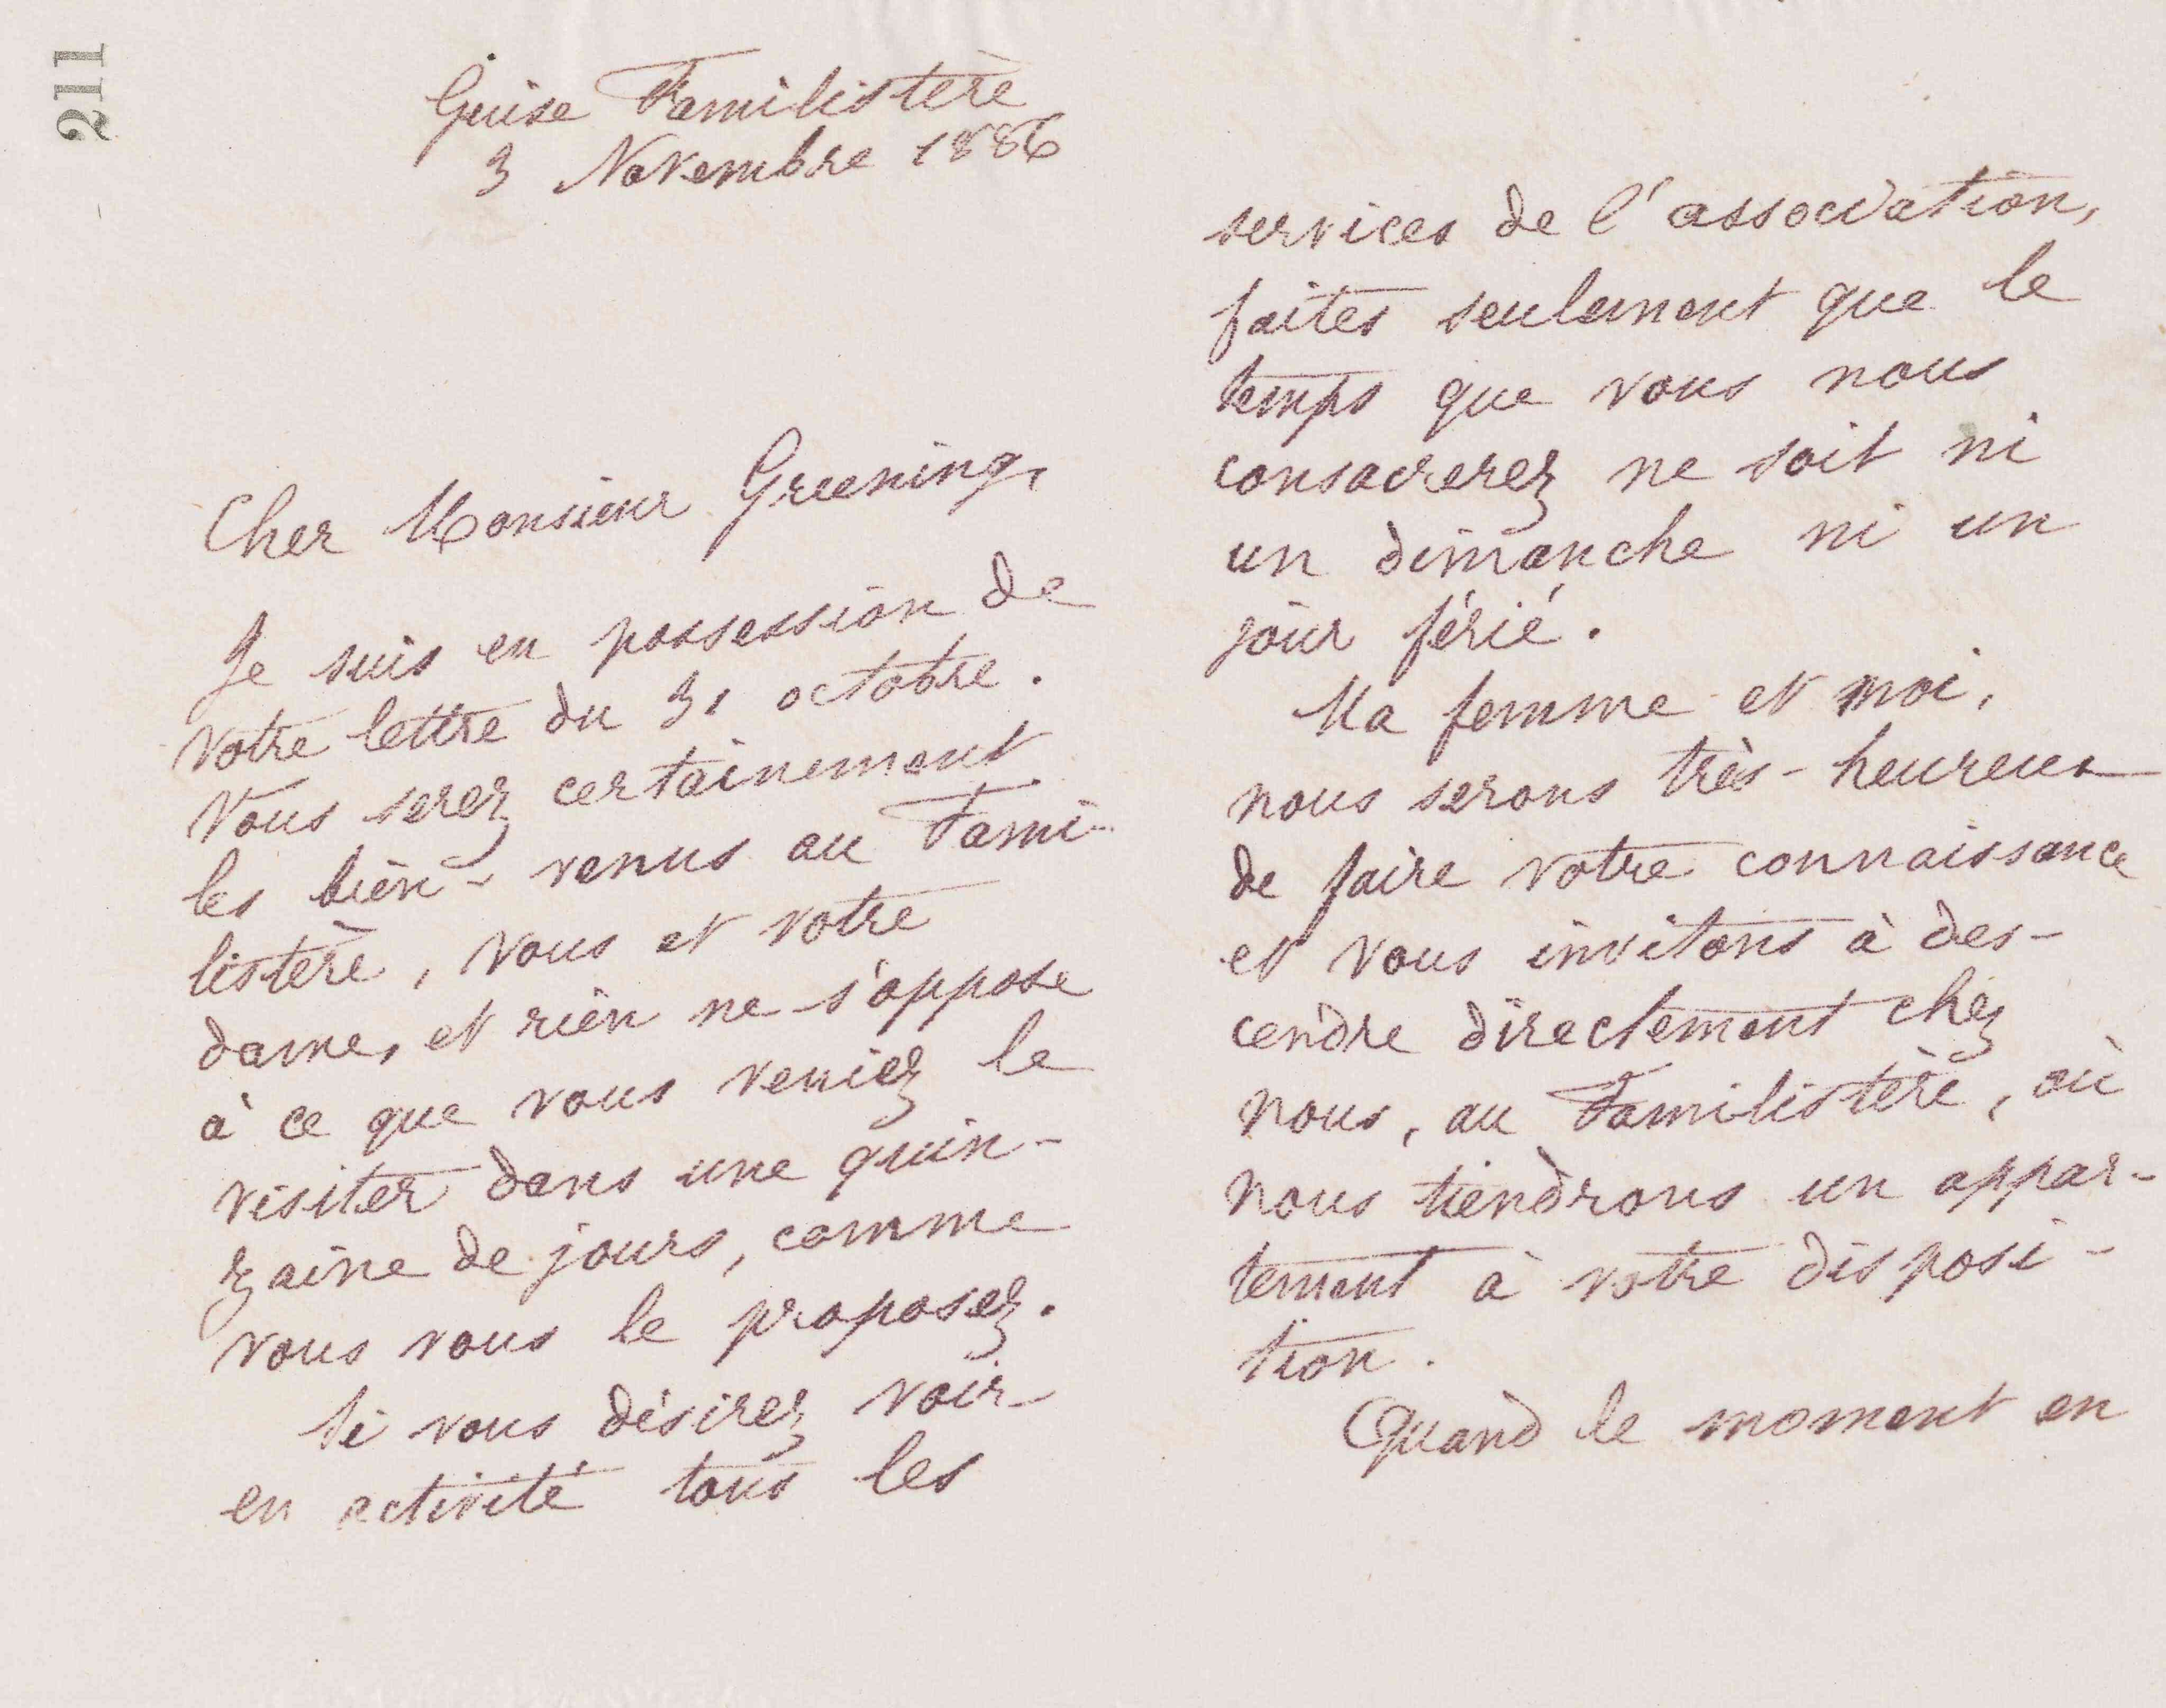 211
Guise Familistère
3 Novembre 1886
Cher Monsieur Greening,
Je suis en possession de
votre lettre du 31 octobre.
Vous serez certainement
les bien-venus au Fami-
listère, vous et votre
dame, et rien ne s'oppose
à ce que vous veniez le
visiter dans une quin-
zaine de jours, comme
vous vous le proposez.
Si vous désirez voir
en activité tous les
services de l'association,
faites seulement que le
temps que vous nous
consacrerez ne soit ni
un dimanche ni un
jour férié.
Ma femme et moi,
nous serons très-heureux
de faire votre connaissance
et vous invitons à des-
cendre directement chez
nous, au Familistère, où
nous tiendrons un appar-
tement à votre disposi-
tion.
Quand le moment en